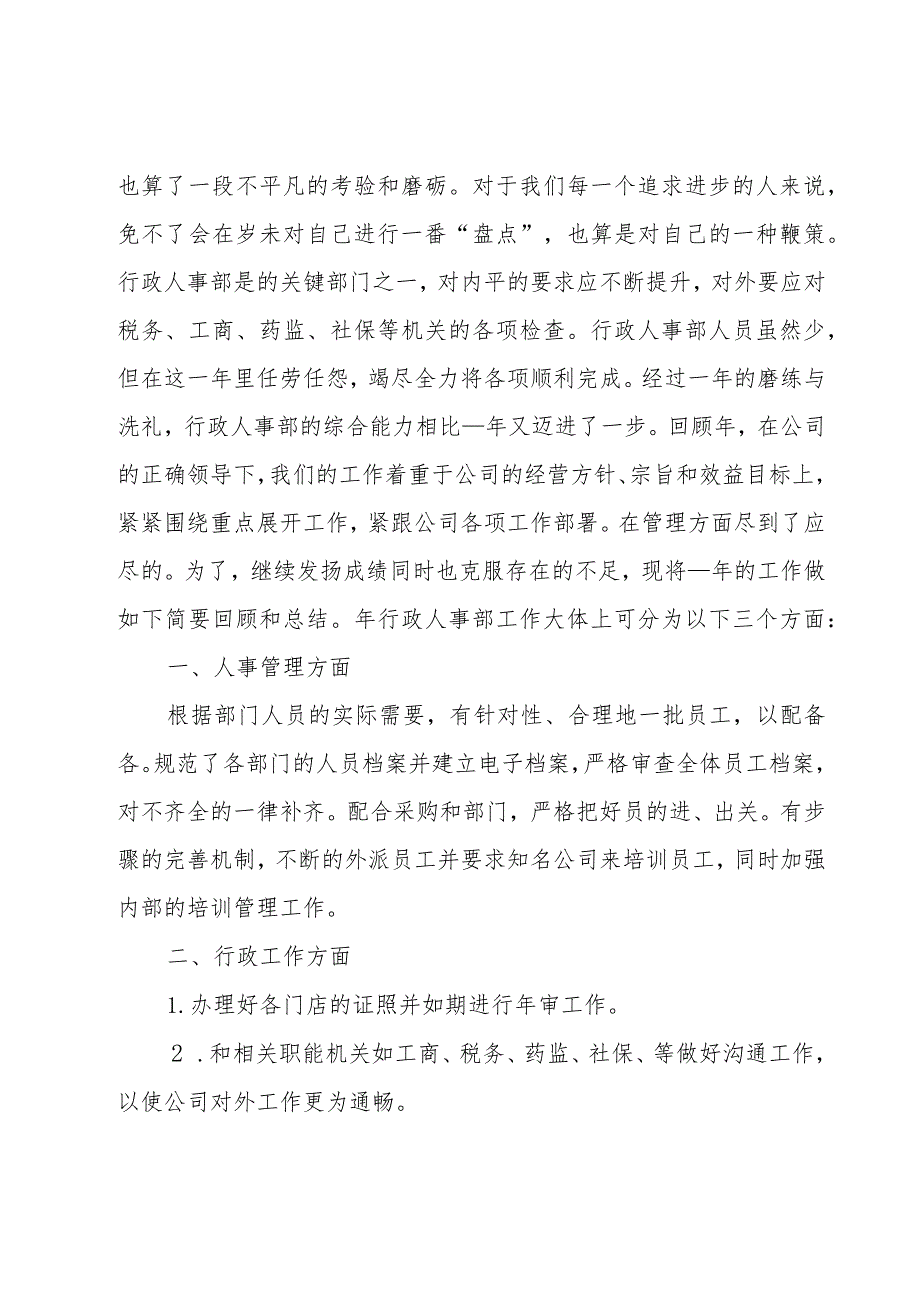 也算了一段不平凡的考验和磨砺。对于我们每一个追求进步的人来说，
免不了会在岁未对自己进行一番“盘点”，也算是对自己的一种鞭策。
行政人事部是的关键部门之一，对内平的要求应不断提升，对外要应对
税务、工商、药监、社保等机关的各项检查。行政人事部人员虽然少，
但在这一年里任劳任怨，竭尽全力将各项顺利完成。经过一年的磨练与
洗礼，行政人事部的综合能力相比—年又迈进了一步。回顾年，在公司
的正确领导下，我们的工作着重于公司的经营方针、宗旨和效益目标上，
紧紧围绕重点展开工作，紧跟公司各项工作部署。在管理方面尽到了应
尽的。为了，继续发扬成绩同时也克服存在的不足，现将—年的工作做
如下简要回顾和总结。年行政人事部工作大体上可分为以下三个方面：
一、人事管理方面
根据部门人员的实际需要，有针对性、合理地一批员工，以配备
各。规范了各部门的人员档案并建立电子档案，严格审查全体员工档案，
对不齐全的一律补齐。配合采购和部门，严格把好员的进、出关。有步
骤的完善机制，不断的外派员工并要求知名公司来培训员工，同时加强
内部的培训管理工作。
二、行政工作方面
1.办理好各门店的证照并如期进行年审工作。
２.和相关职能机关如工商、税务、药监、社保、等做好沟通工作，
以使公司对外工作更为通畅。